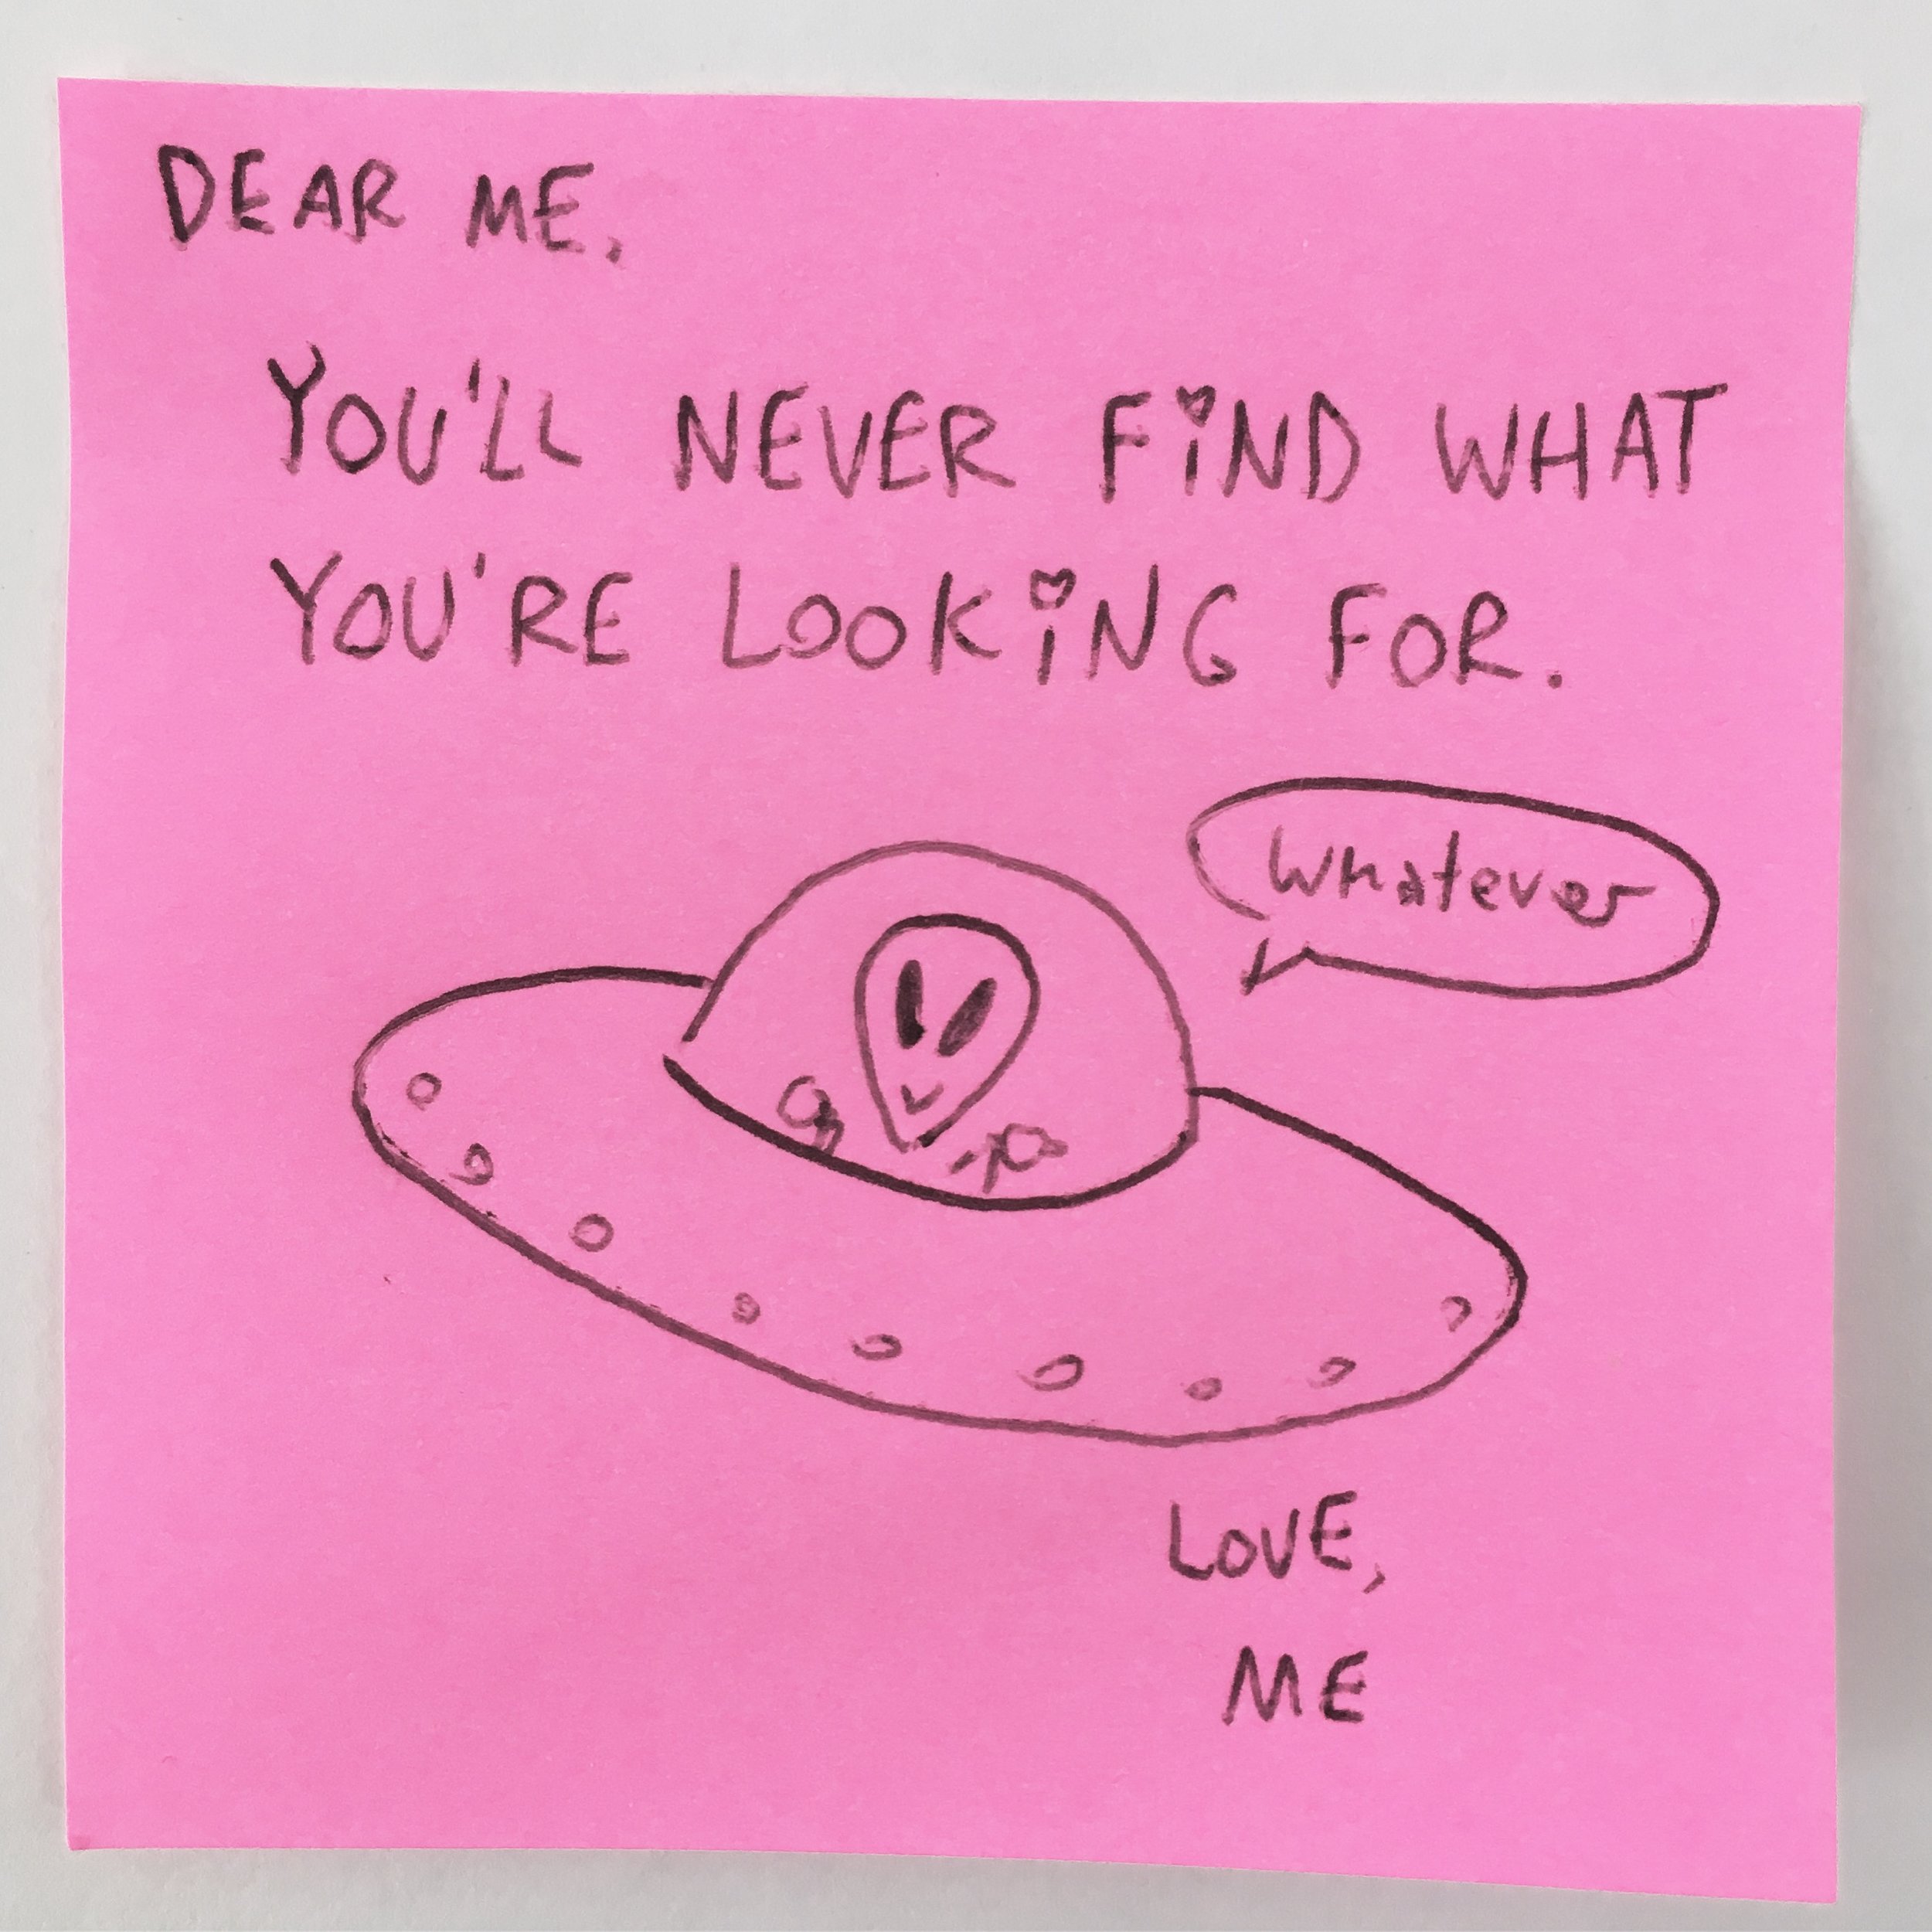 DEAR ME,
YOU'LL NEVER FiND WHAT
YOU'RE LOOKiNG FOR.
Whatever
LOVE,
ME